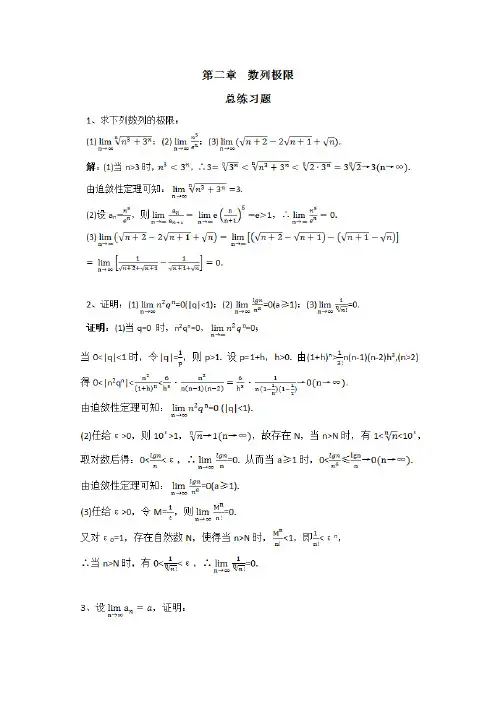 第二章 数列极限
总练习题
1、求下列数列的极限:
(1) lim_{n→∞} ⁿ√(n³+3ⁿ); (2) lim_{n→∞} n⁵/eⁿ; (3) lim_{n→∞} (√(n+2)−2√(n+1)+√n).
解: (1)当 n>3 时, n³ < 3ⁿ, ∴3= ⁿ√(3ⁿ) < ⁿ√(n³+3ⁿ) < ⁿ√(2·3ⁿ) = 3ⁿ√2→3(n→∞).
由迫敛性定理可知: lim_{n→∞} ⁿ√(n³+3ⁿ) =3.
(2)设 aₙ=n⁵/eⁿ, 则 lim_{n→∞} aₙ/aₙ₊₁ = lim_{n→∞} e(n/(n+1))⁵ =e>1, ∴ lim_{n→∞} n⁵/eⁿ = 0.
(3) lim_{n→∞} (√(n+2)−2√(n+1)+√n) = lim_{n→∞} [(√(n+2)−√(n+1)) − (√(n+1)−√n)]
= lim_{n→∞} [1/(√(n+2)+√(n+1)) − 1/(√(n+1)+√n)] = 0.
2、证明: (1) lim_{n→∞} n²qⁿ=0(|q|<1); (2) lim_{n→∞} lgn/nᵃ=0(a≥1); (3) lim_{n→∞} 1/ⁿ√(n!)=0.
证明: (1)当 q=0 时, n²qⁿ=0, lim_{n→∞} n²qⁿ=0;
当 0<|q|<1 时, 令|q|=1/p, 则 p>1. 设 p=1+h, h>0. 由(1+h)ⁿ>1/3! n(n-1)(n-2)h³,(n>2)
得 0<|n²qⁿ|<n²/(1+h)ⁿ<6/h³ · n²/(n(n−1)(n−2)) = 6/h³ · 1/(n(1−1/n)(1−2/n))→0(n→∞).
由迫敛性定理可知: lim_{n→∞} n²qⁿ=0 (|q|<1).
(2)任给 ε>0, 则 10^ε>1, ⁿ√n→1(n→∞), 故存在 N, 当 n>N 时, 有 1<ⁿ√n<10^ε,
取对数后得: 0<lgn/n<ε, ∴ lim_{n→∞} lgn/n=0. 从而当 a≥1 时, 0<lgn/nᵃ≤lgn/n→0(n→∞).
由迫敛性定理可知: lim_{n→∞} lgn/nᵃ=0(a≥1).
(3)任给 ε>0, 令 M=1/ε, 则 lim_{n→∞} Mⁿ/n!=0.
又对 ε₀=1, 存在自然数 N, 使得当 n>N 时, Mⁿ/n!<1, 即1/n!<εⁿ,
∴当 n>N 时, 有 0<1/ⁿ√(n!)<ε, ∴ lim_{n→∞} 1/ⁿ√(n!)=0.
3、设 lim_{n→∞} aₙ = a, 证明: